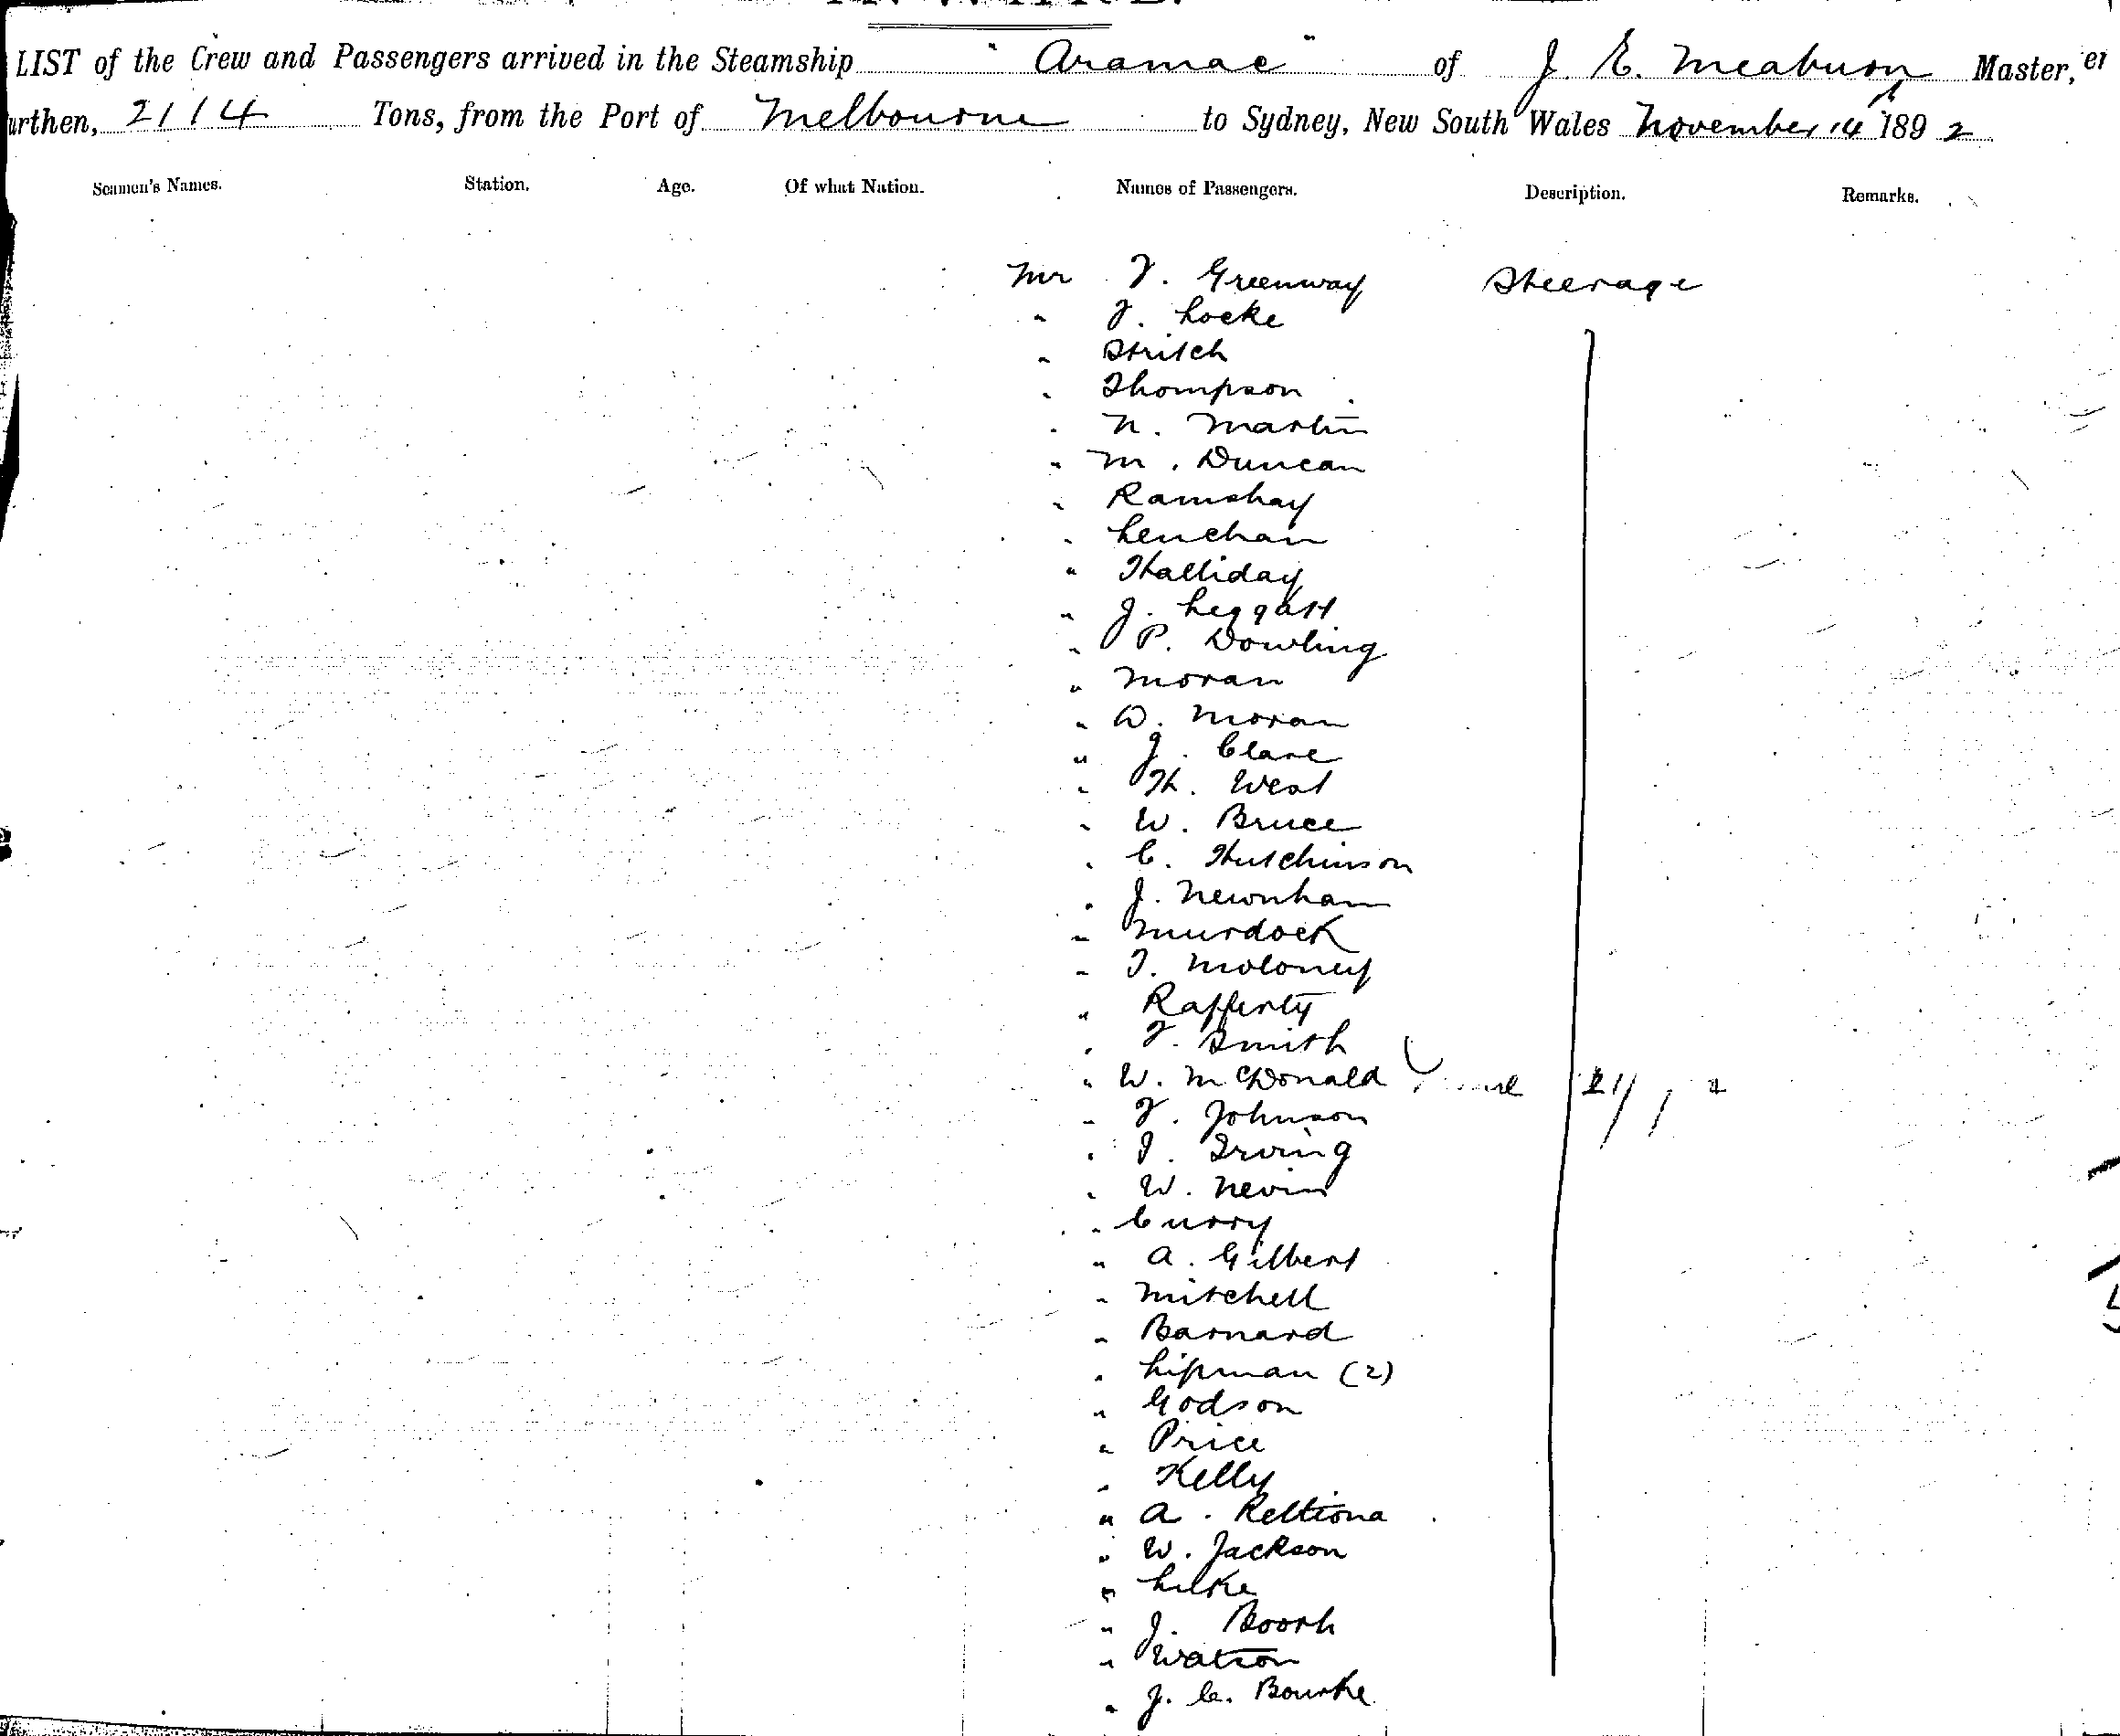 LIST of the Crew and Passengers arrived in the Steamship "Aramac" of J. E. Meaburn Master,
urthen, 2114 Tons, from the Port of Melbourne to Sydney, New South Wales November 14th 1892
Seamen's Names. Station. Age. Of what Nation. Names of Passengers. Description. Remarks.
Mr F. Greenway Steerage
" F. Locke
" Stritch
" Thompson
" N. Martin
" M. Duncan
" Ramshay
" Lenehan
" Halliday
" J. Leggatt
" P. Dowling
" Moran
" D. Moran
" J. Clare
" H. West
" W. Bruce
" C. Hutchinson
" J. Newnham
" Murdock
" T. Moloney
" Rafferty
" F. Smith
" W. McDonald
" F. Johnson
" I. Irving
" W. Nevin
" Curry
" A. Gilbert
" Mitchell
" Barnard
" Lipman (2)
" Godson
" Price
" Kelly
" A. Reltiona
" W. Jackson
" Luke
" J. Booth
" Watson
" J. C. Bourke